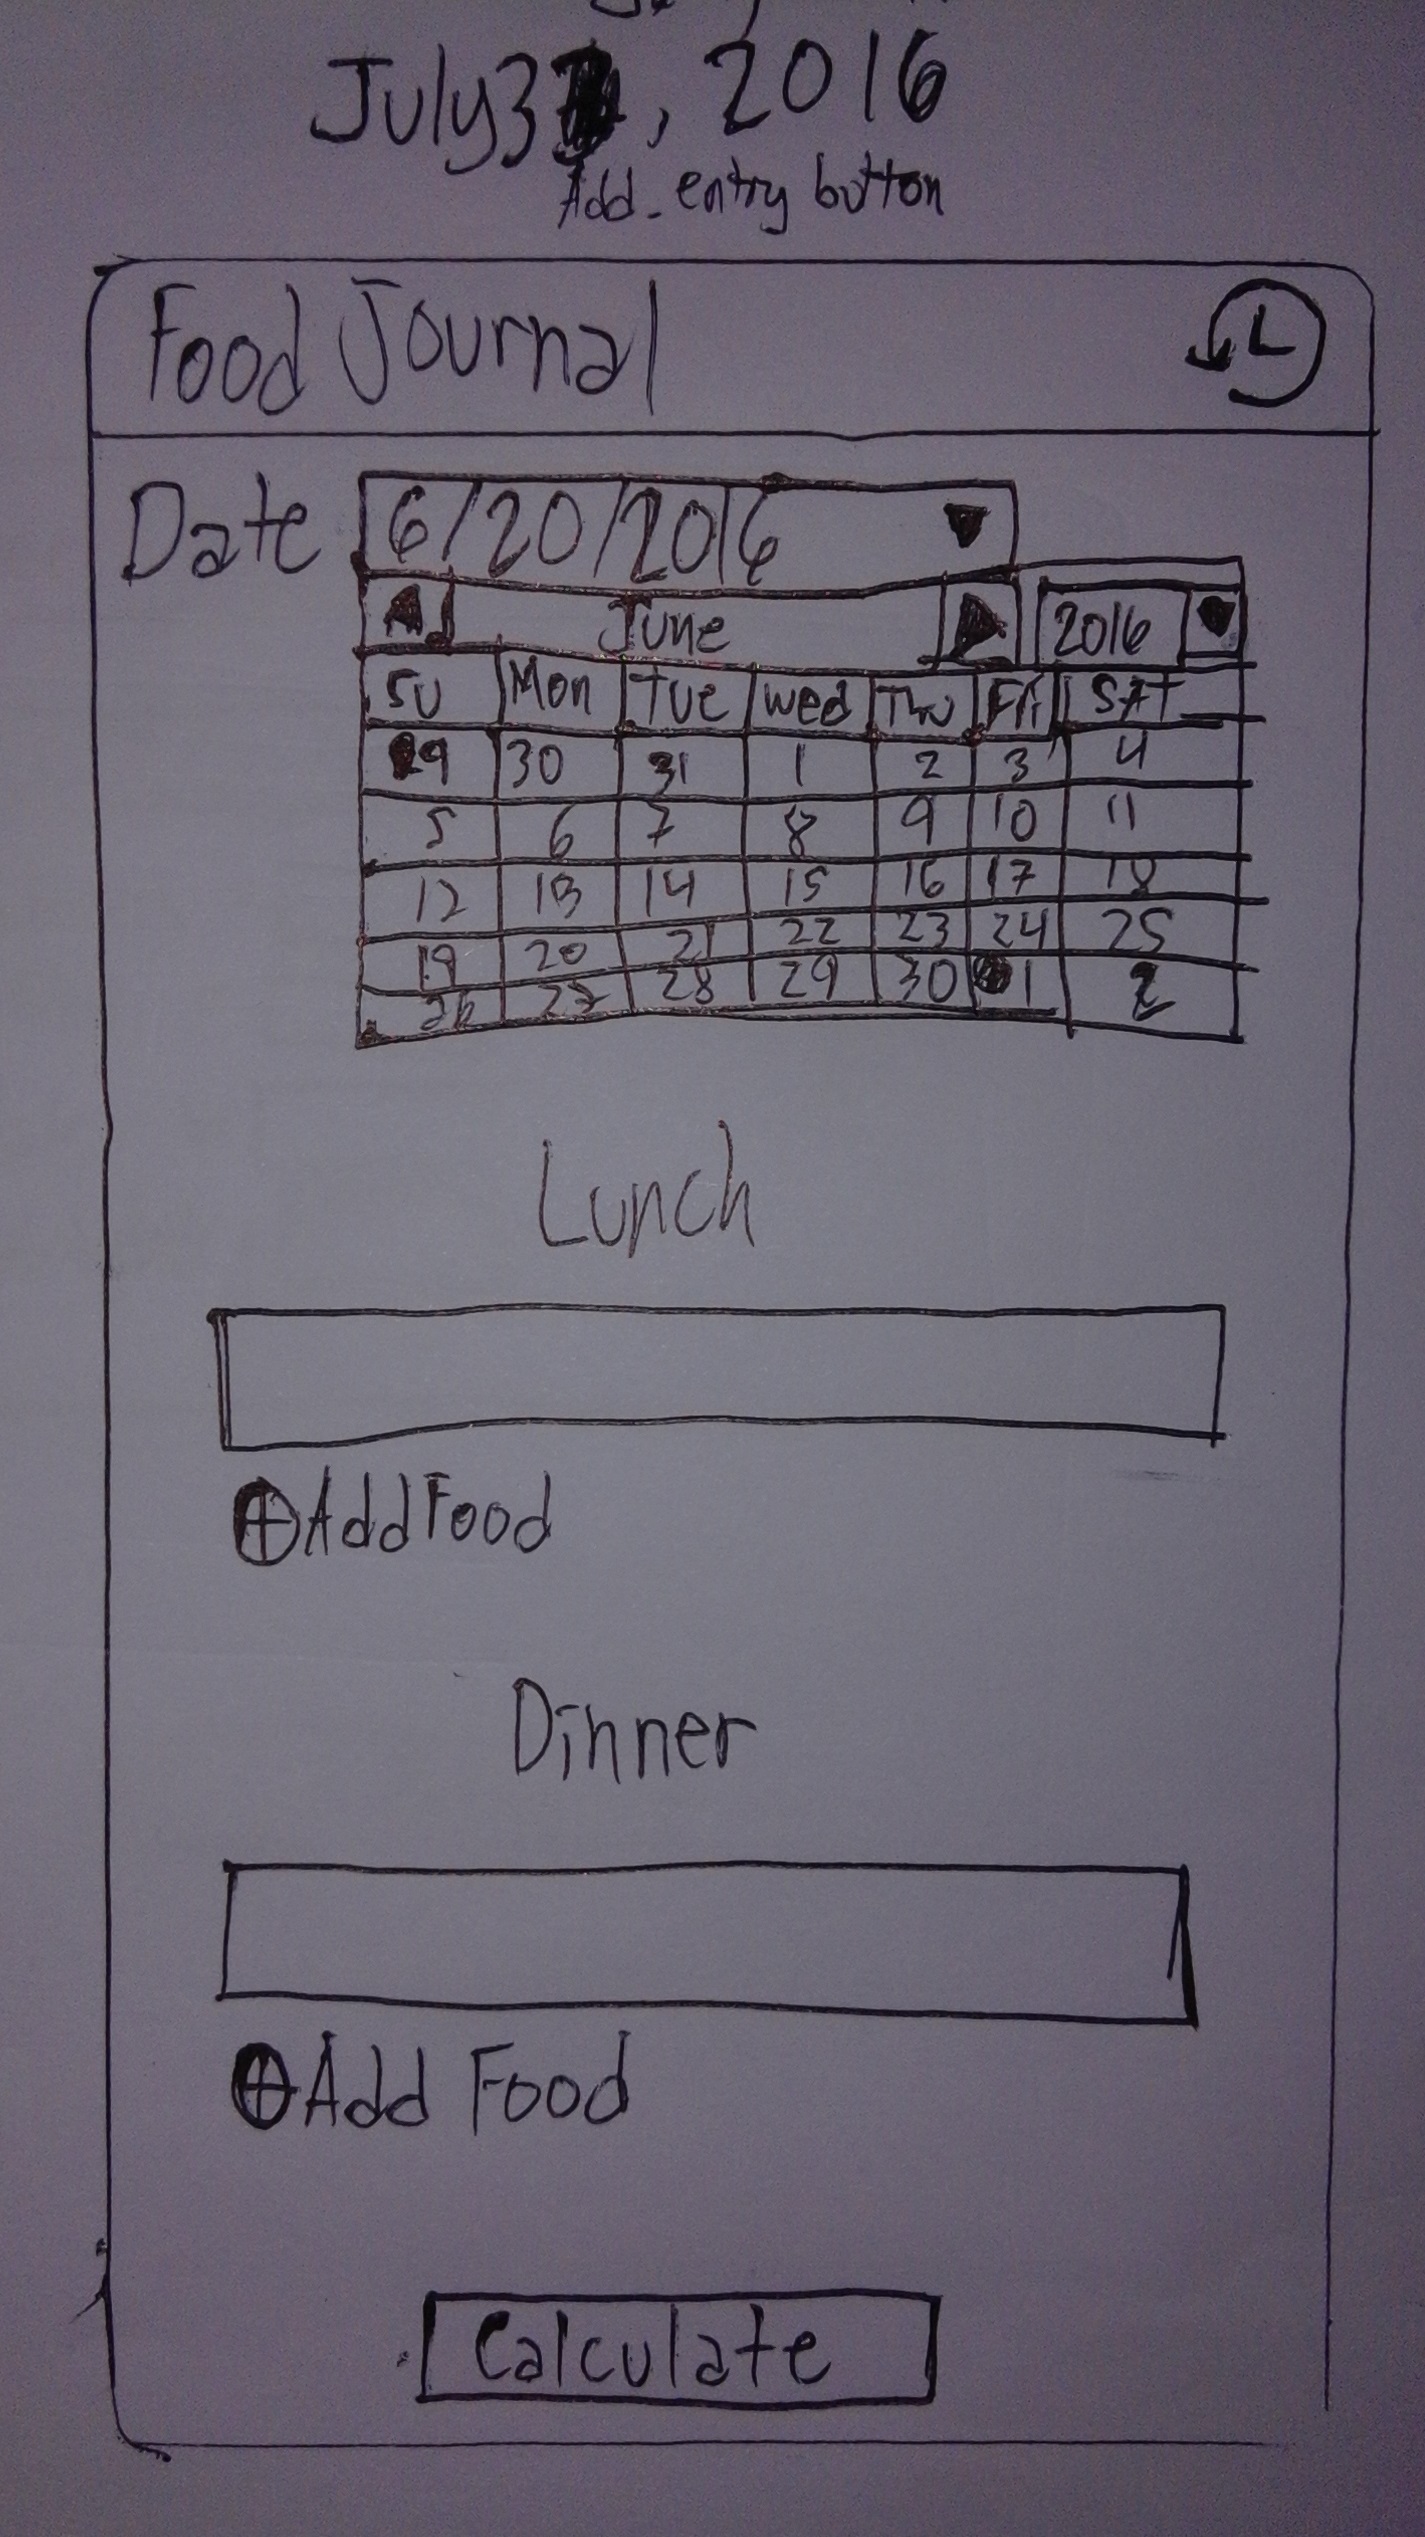 July 3, 2016
Add entry button
Food Journal
Date 6/20/2016
June 2016
SU Mon Tue Wed Thu Fri SAT
29 30 31 1 2 3 4
5 6 7 8 9 10 11
12 13 14 15 16 17 18
19 20 21 22 23 24 25
26 27 28 29 30 1 2
Lunch
Add Food
Dinner
Add Food
Calculate